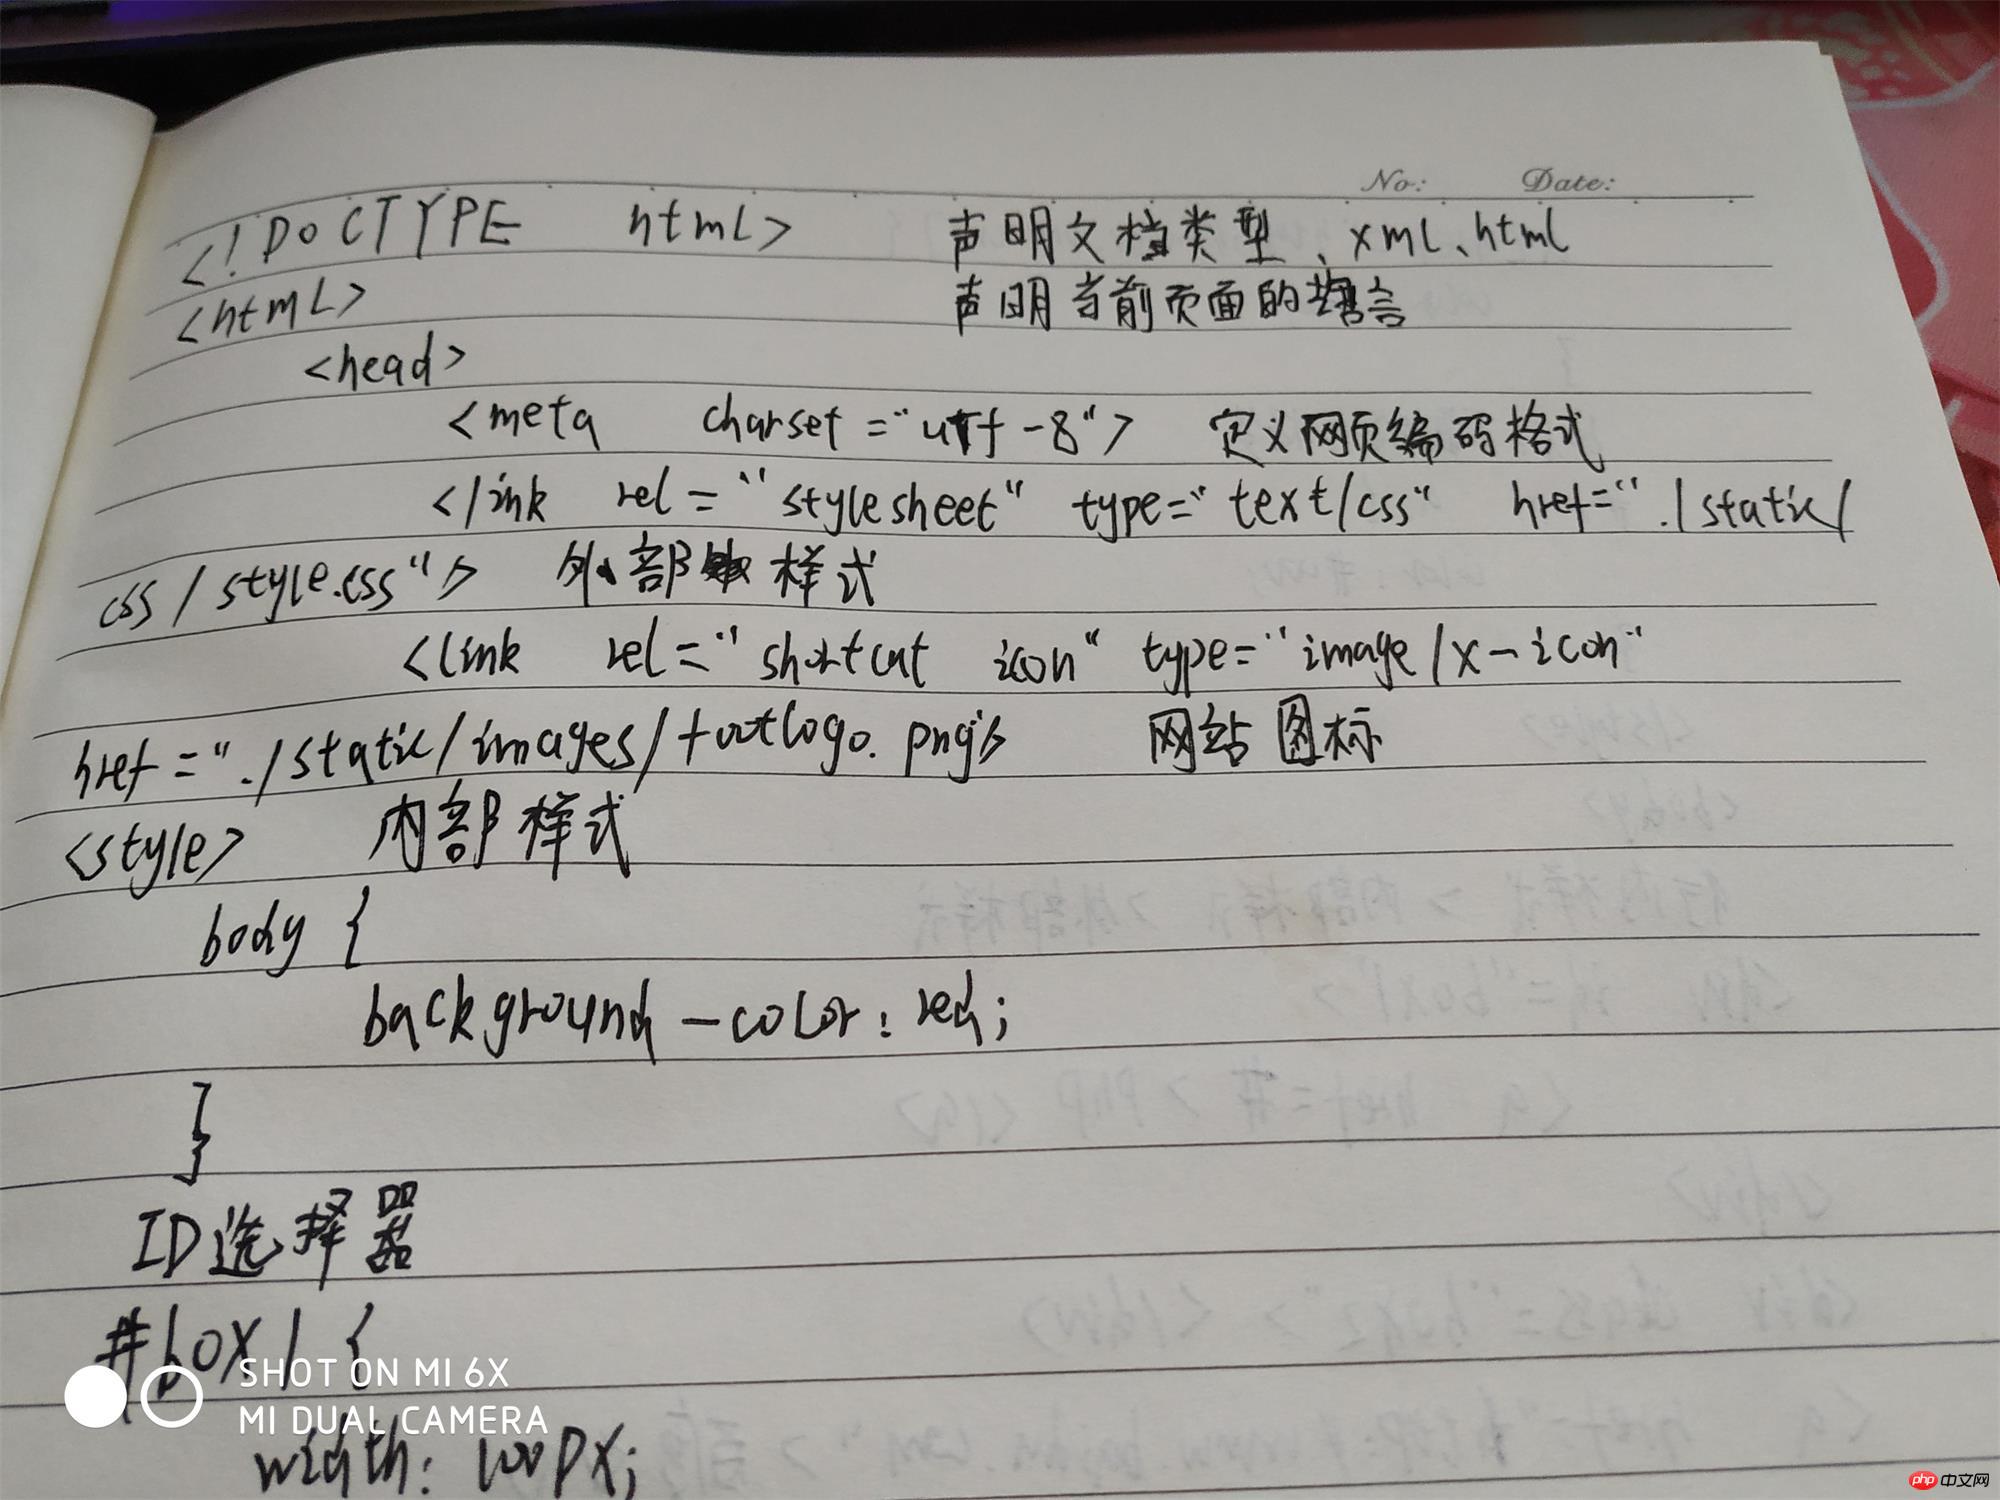 No: Date:
<!DOCTYPE html> 声明文档类型、xml、html
<html> 声明当前页面的语言
<head>
<meta charset="utf-8"> 定义网页编码格式
</ink rel="stylesheet" type="text/css" href="./static/
css/style.css"> 外部样式
<link rel="shortcut icon" type="image/x-icon"
href="./static/images/footlogo.png"> 网站图标
<style> 内部样式
body {
background-color: red;
}
ID选择器
#box1 {
SHOT ON MI 6X
MI DUAL CAMERA
width: 100px;
php 中文网